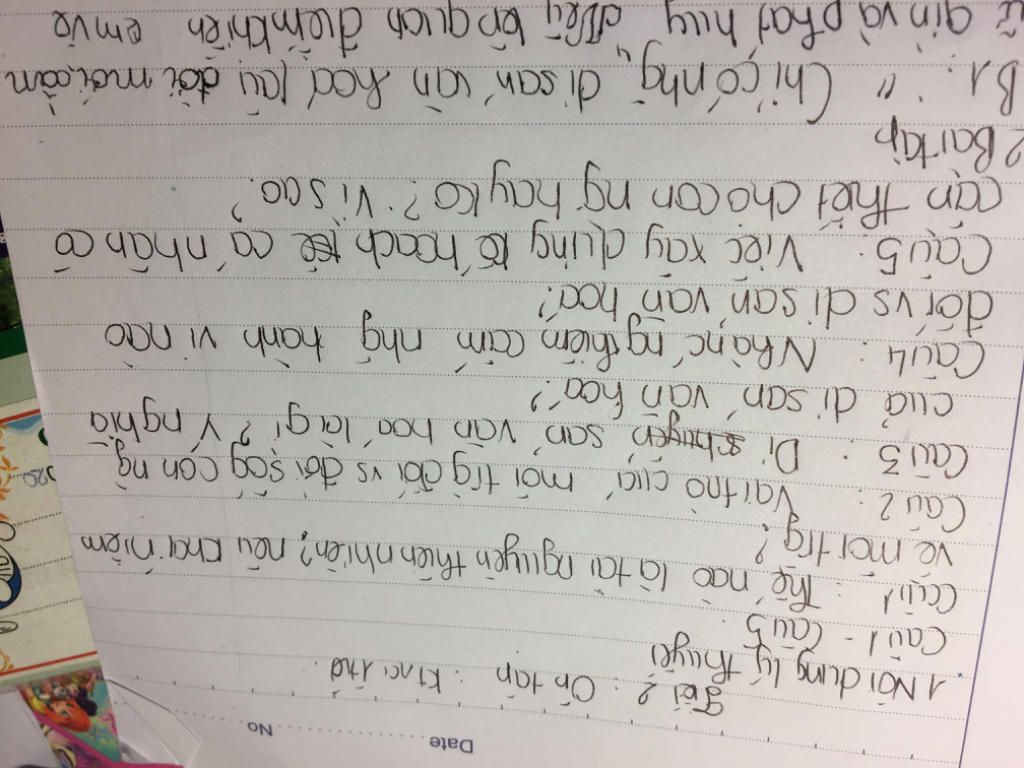 Date
No
Tiết 2 : Ôn tập : K1
1 Nội dung lý thuyết
Câu 1 - Câu 5.
Câu 1 : Thế nào là tài nguyên thiên nhiên?, nêu khái niệm
về môi trg?
Câu 2 : Vai trò của môi trg đối vs đời sog con ng
Câu 3 : Di sản văn hoá là gì? Ý nghĩa
của di sản văn hoá?
Câu 4 : Nhà nc nghiêm cấm nhg hành vi nào
đối vs di sản văn hoá?
Câu 5 : Việc xây dựng kế hoạch cá nhân có
cần thiết cho con ng hay ko? Vì sao?
2 Bài tập
B1 : " Chỉ có nhg di sản văn hoá lâu đời mới cần
giữ gìn và phát huy đấy là quan điểm em về